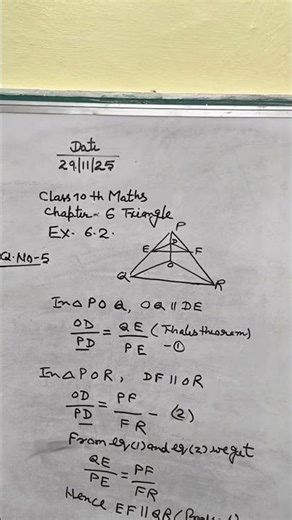 Date
29/11/25
Class 10 th Maths
Chapter- 6 Triangle
Ex- 6.2.
Q.No-5
P
D
E
F
O
Q
R
In △ P O Q, OQ || DE
OD/PD = QE/PE (Thales theorem) -①
In △ P O R, DF || OR
OD/PD = PF/FR - (2)
From eq (1) and eq (2) we get
QE/PE = PF/FR
Hence EF || QR (